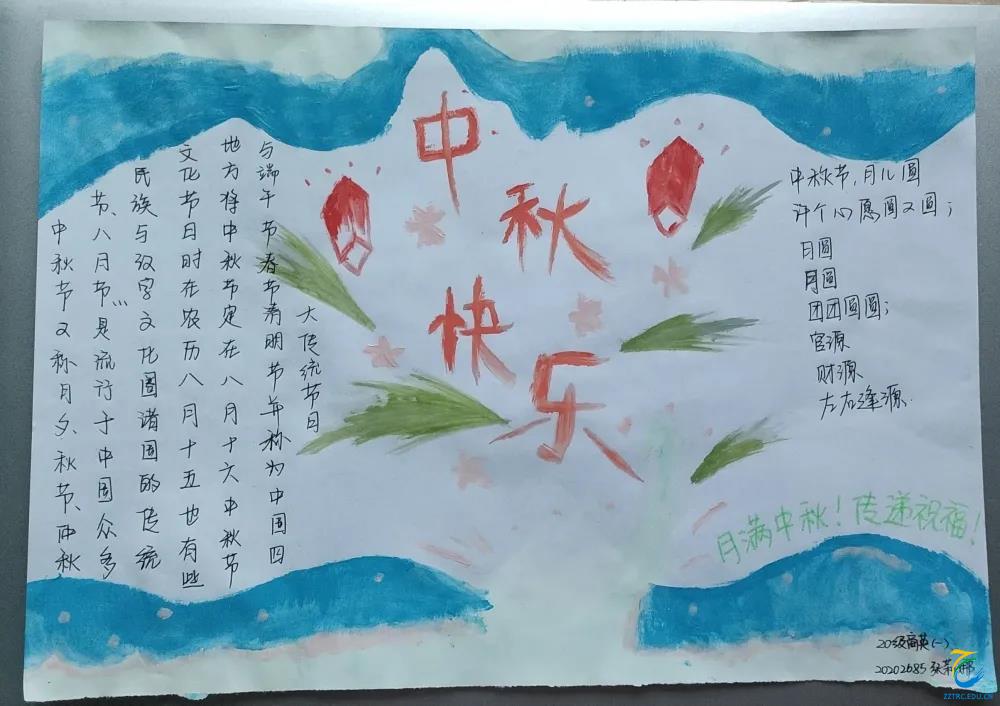 中秋快乐
中秋节又称月夕、秋节、仲秋
节、八月节…是流行于中国众多
民族与汉字文化圈诸国的传统
文化节日时在农历八月十五也有些
地方将中秋节定在八月十六中秋节
与端午节春节清明节并称为中国四
大传统节日
中秋节,月儿圆
许个心愿圆又圆;
日圆
月圆
团团圆圆;
官源
财源
左右逢源.
月满中秋!传递祝福!
20级商英(一)
20202685
ZZTRC.EDU.CN